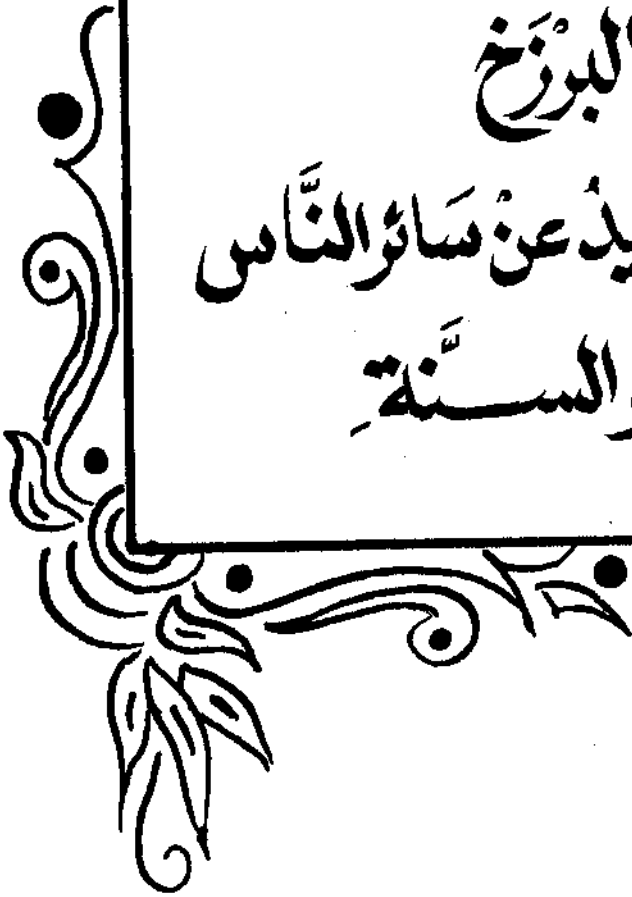 البرْزَخ
يدُ عنْ سَائر النَّاس
والسنَّةِ